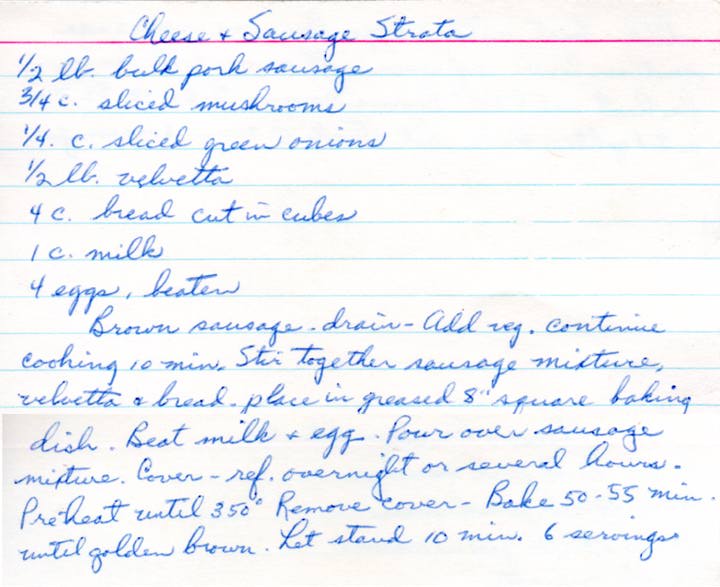 Cheese + Sausage Strata
1/2 lb. bulk pork sausage
3/4 c. sliced mushrooms
1/4. c. sliced green onions
1/2 lb. velvetta
4 c. bread cut in cubes
1 c. milk
4 eggs, beaten
Brown sausage - drain - Add veg. continue
cooking 10 min. Stir together sausage mixture,
velvetta & bread. place in greased 8" square baking
dish. Beat milk & egg. Pour over sausage
mixture. Cover - ref. overnight or several hours.
Preheat until 350° Remove cover - Bake 50-55 min.
until golden brown. Let stand 10 min. 6 servings